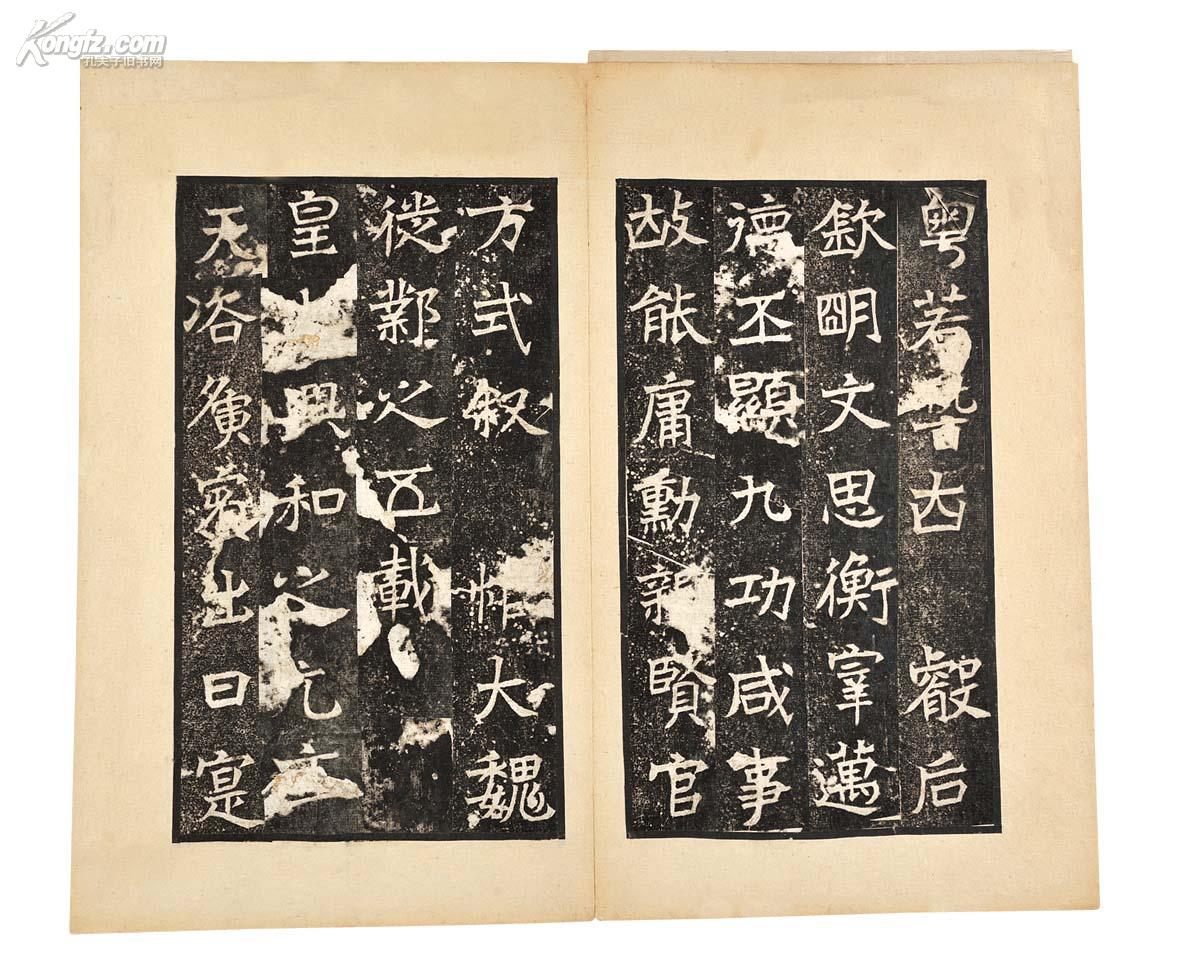 Kongfz.com
孔夫子旧书网
粤若稽古叡后
欽明文思衡宰邁
德丕顯九功咸事
故能庸勳親賢官
方式叙惟大魏
徙鄴之五載
皇興和之元
天咨實出日寔